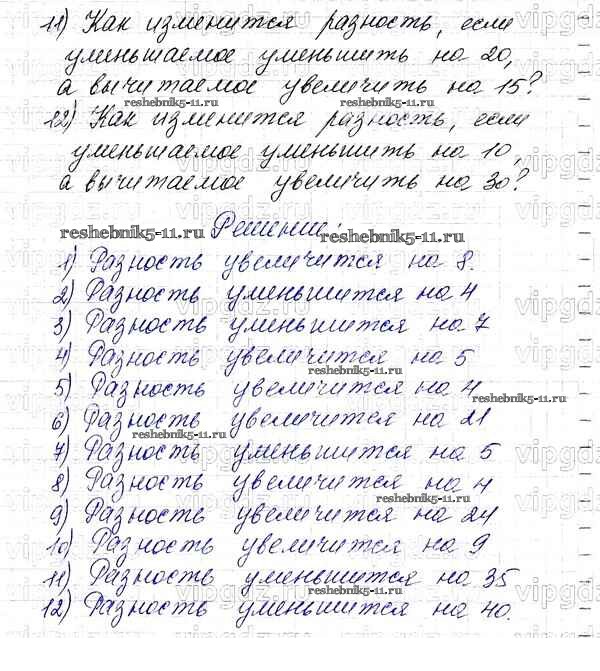 11) Как изменится разность, если
уменьшаемое уменьшить на 20,
а вычитаемое увеличить на 15?
reshebnik5-11.ru
12) Как изменится разность, если
уменьшаемое уменьшить на 10,
а вычитаемое увеличить на 30?
reshebnik5-11.ru
Решение:
1) Разность увеличится на 8.
2) Разность уменьшится на 4
3) Разность уменьшится на 7
4) Разность увеличится на 5
reshebnik5-11.ru
5) Разность увеличится на 4
reshebnik5-11.ru
6) Разность увеличится на 21
reshebnik5-11.ru
7) Разность уменьшится на 5
8) Разность увеличится на 4
reshebnik5-11.ru
9) Разность увеличится на 24
10) Разность увеличится на 9
reshebnik5-11.ru
11) Разность уменьшится на 35
12) Разность уменьшится на 40.
vipgdz.ru